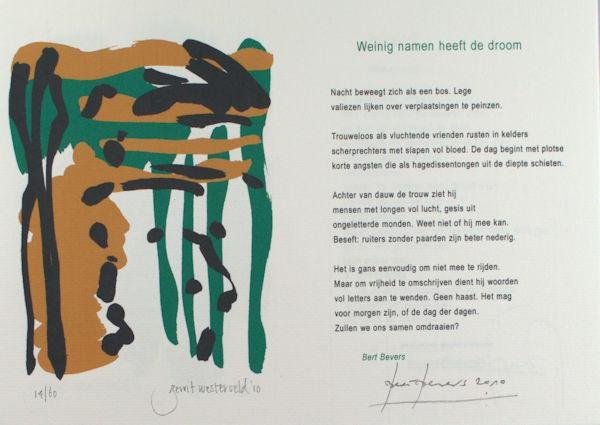 Weinig namen heeft de droom
Nacht beweegt zich als een bos. Lege
valiezen lijken over verplaatsingen te peinzen.
Trouweloos als vluchtende vrienden rusten in kelders
scherprechters met slapen vol bloed. De dag begint met plotse
korte angsten die als hagedissentongen uit de diepte schieten.
Achter van dauw de trouw ziet hij
mensen met longen vol lucht, gesis uit
ongeletterde monden. Weet niet of hij mee kan.
Beseft: ruiters zonder paarden zijn beter nederig.
Het is gans eenvoudig om niet mee te rijden.
Maar om vrijheid te omschrijven dient hij woorden
vol letters aan te wenden. Geen haast. Het mag
voor morgen zijn, of de dag der dagen.
Zullen we ons samen omdraaien?
Bert Bevers
14/60
gerrit westerveld '10
Bert Bevers 2010